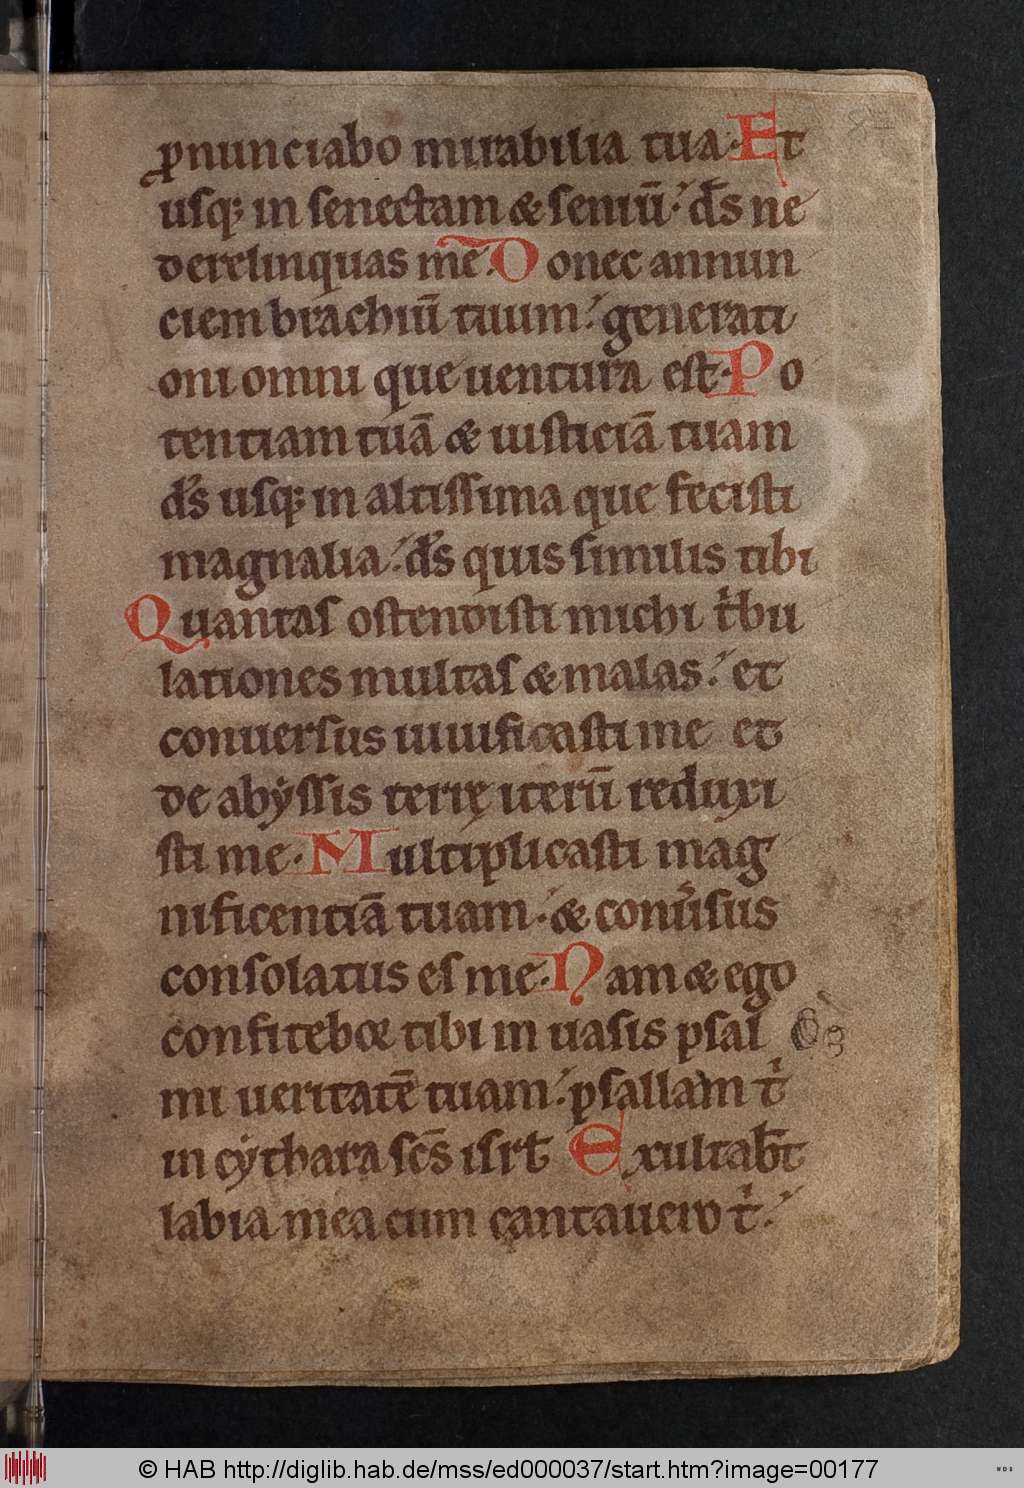 ꝓnunciabo mirabilia tua. Et
usq; in senectam & seniū: ds̄ ne
derelinquas me. Donec annun
ciem brachiū tuum: generati
oni omni que uentura est. Po
tentiam tuā & iusticiā tuam
ds̄ usq; in altissima que fecisti
magnalia: ds̄ quis similis tibi
Quantas ostendisti michi tⁱbu
lationes multas & malas: et
conuersus uiuificasti me et
de abyssis terrę iterū reduxi
sti me. Multiplicasti mag
nificentiā tuam: & conu̓sus
consolatus es me. Nam & ego
confitebor tibi in uasis psal
mi ueritatē tuam: psallam tⁱ
in cythara scs̄ isrł Exultab̄t
labia mea cum cantauero tⁱ:
© HAB http://diglib.hab.de/mss/ed000037/start.htm?image=00177